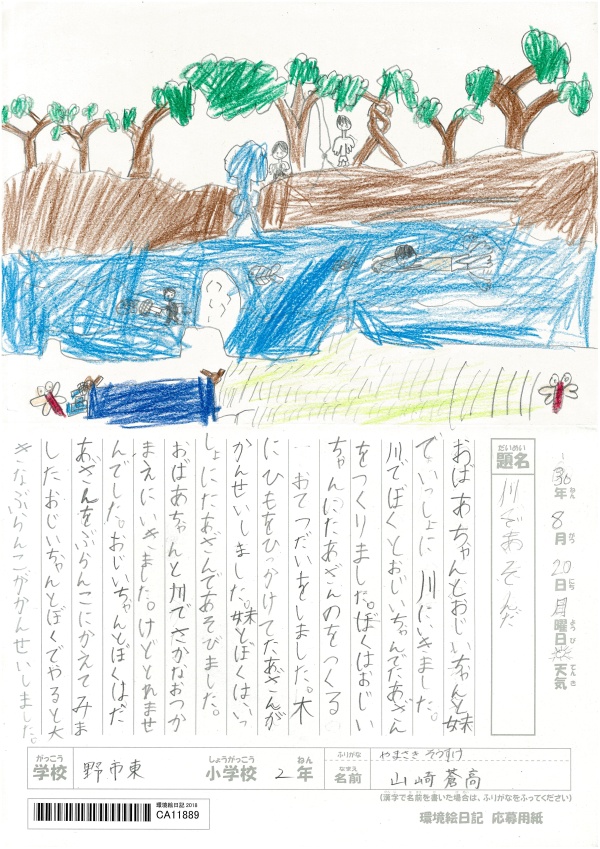 30年 8月 20日 月曜日 天気
ねん がつ にち ようび てんき
だいめい
題名
川であそんだ
おばあちゃんとおじいちゃんと妹
で、いっしょに川にいきました。
川でぼくとおじいちゃんでたあざん
をつくりました。ぼくはおじい
ちゃんにたあざんのをつくる
おてつだいをしました。木
にひもをひっかけてたあざんが
かんせいしました。妹とぼくは、いっ
しょにたあざんであそびました。
おばあちゃんと川でさかなおつか
まえにいきました。けどとれませ
んでした。おじいちゃんとぼくはだ
あざんをぶらんこにかえてみま
した。おじいちゃんとぼくでやると大
きなぶらんこがかんせいしました。
がっこう しょうがっこう ねん
学校 野市東 小学校 2年
ふりがな やまさき そうすけ
なまえ
名前 山﨑蒼高
(漢字で名前を書いた場合は、ふりがなをふってください)
環境絵日記2018
CA11889
環境絵日記 応募用紙